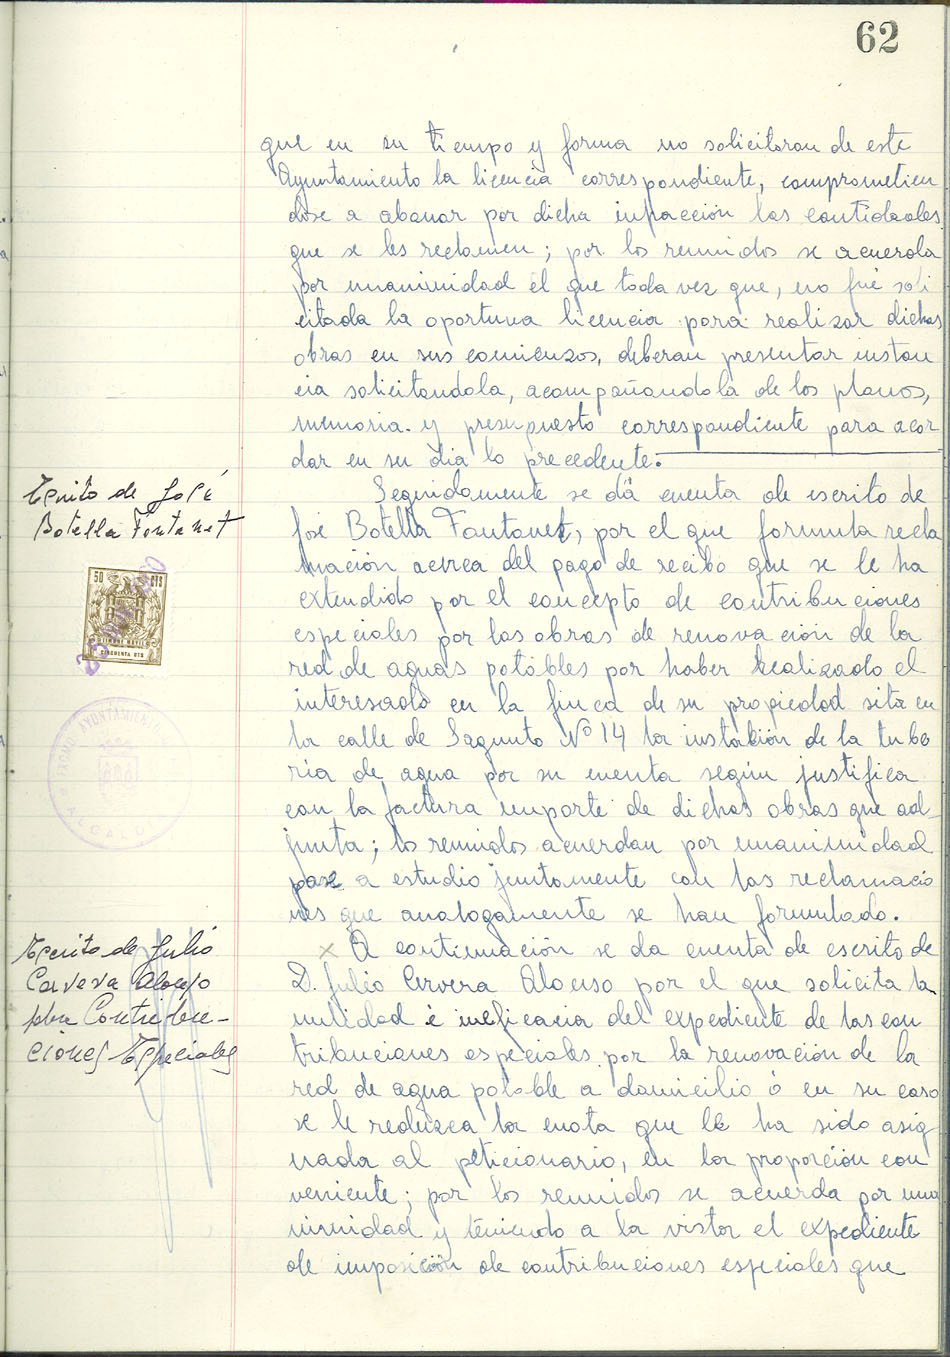 62
que en su tiempo y forma no solicitaron de este
Ayuntamiento la licencia correspondiente, comprometien
dose a abonar por dicha infracción las cantidades
que se les reclamen; por los reunidos se acuerda
por unanimidad el que toda vez que, no fué soli
citada la oportuna licencia para realizar dichas
obras en sus comienzos, deberan presentar instan
cia solicitandola, acompañandola de los planos,
memoria y presupuesto correspondiente para acor
dar en su dia lo precedente.
Escrito de José
Botella Fontanet
Seguidamente se dá cuenta de escrito de
José Botella Fontanet, por el que formula recla
mación acerca del pago de recibo que se le ha
extendido por el concepto de contribuciones
especiales por las obras de renovación de la
red de aguas potables por haber realizado el
interesado en la finca de su propiedad sita en
la calle de Sagunto Nº 14 la instalción de la tube
ria de agua por su cuenta según justifica
con la factura importe de dichas obras que ad-
junta; los reunidos acuerdan por unanimidad
pase a estudio juntamente con las reclamacio
nes que analogamente se han formulado.
50 CTS
TIMBRE MOVIL
CINCUENTA CTS
EXCMO. AYUNTAMIENTO
ALCALDIA
Escrito de Julio
Cervera Alonso
sobre Contribu-
ciones Especiales
A continuación se da cuenta de escrito de
D. Julio Cervera Alonso por el que solicita la
nulidad é ineficacia del expediente de las con
tribuciones especiales por la renovación de la
red de agua potable a domicilio ó en su caso
se le reduzca la cuota que le ha sido asig
nada al peticionario, en la proporción con
veniente; por los reunidos se acuerda por una
nimidad y teniendo a la vista el expediente
de imposición de contribuciones especiales que